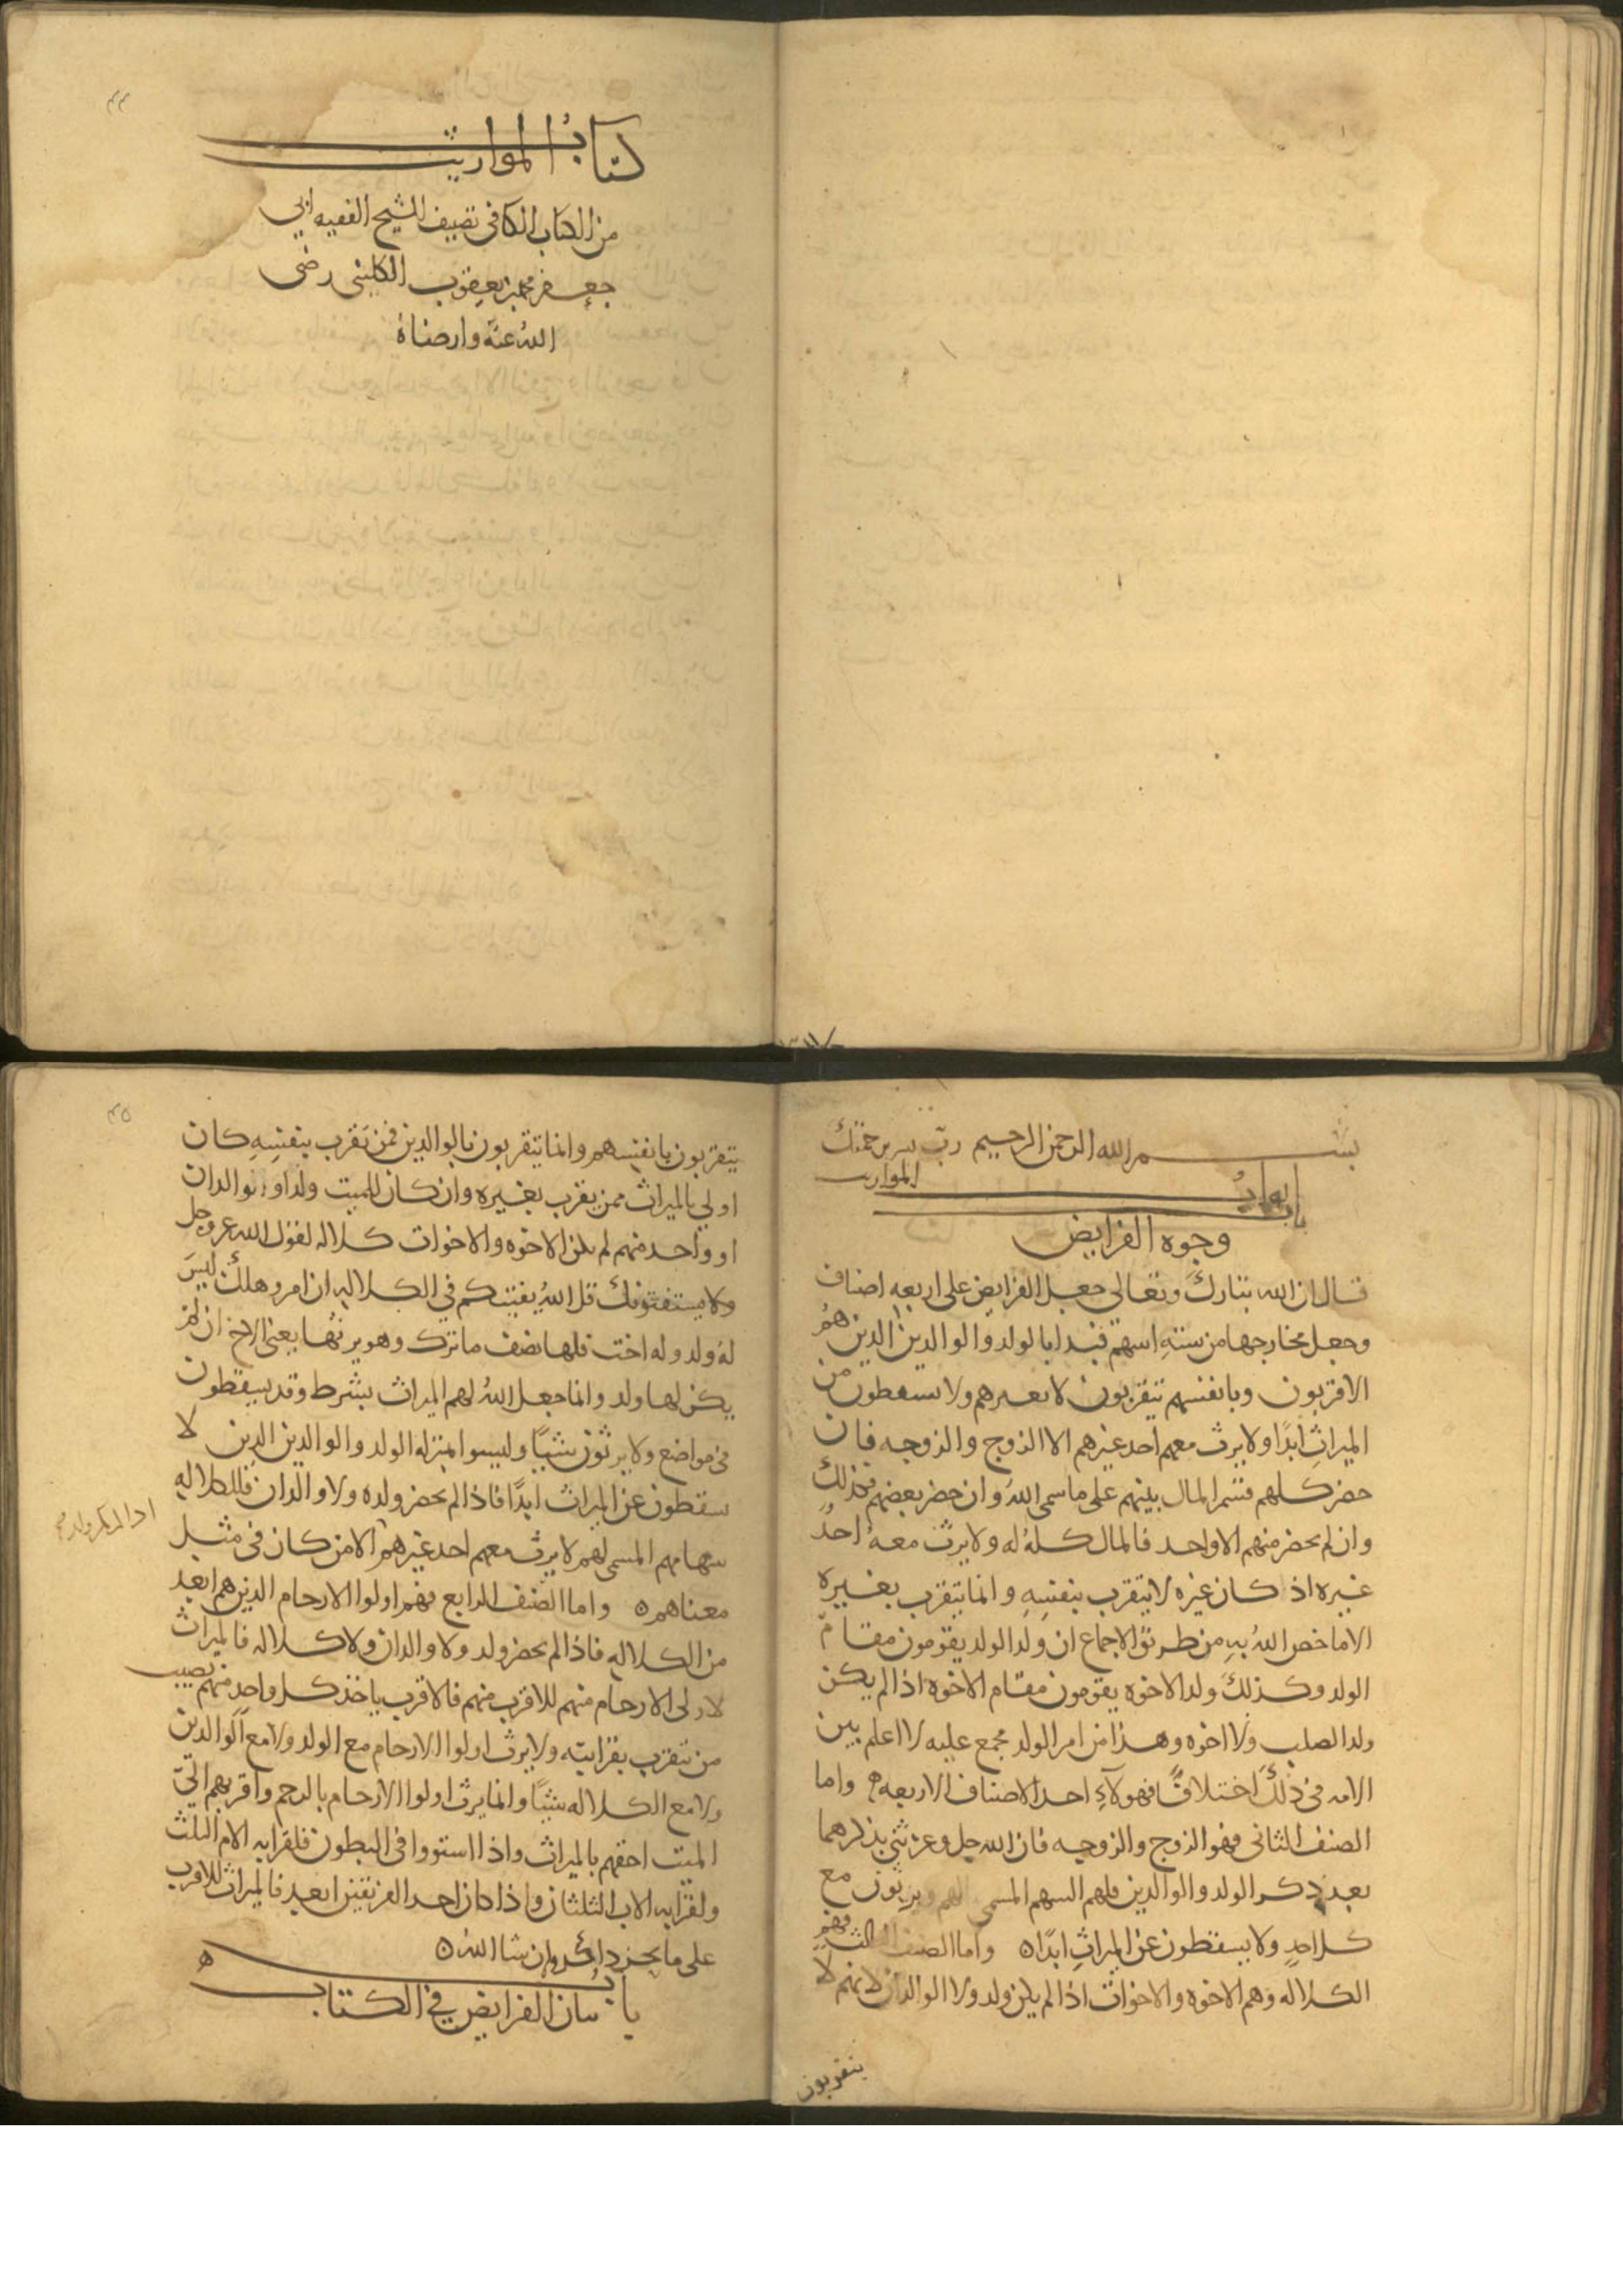 ٣٤
كتاب المواريث
من الكتاب الكافي تصنيف الشيخ الفقيه ابي
جعفر محمد بن يعقوب الكليني رضي
الله عنه وارضاه
بسم الله الرحمن الرحيم رب يسر برحمتك
ابواب المواريث
باب
وجوه الفرايض
قال ان الله تبارك وتعالى جعل الفرايض على اربعه اصناف
وجعل مخارجها من ستة اسهم فبدا بالولد والوالدين الذين هم
الاقربون وبانفسهم يتقربون لا بغيرهم ولا يسقطون من
الميراث ابدًا ولا يرث معهم احد غيرهم الا الزوج والزوجه فان
حضر كلهم قسم المال بينهم على ما سمى الله وان حضر بعضهم فكذلك
وان لم يحضر منهم الا واحد فالمال كله له ولا يرث معه احدٌ
غيره اذ كان غيره لا يتقرب بنفسه وانما يتقرب بغيره
الا ما خص الله به من طريق الاجماع ان ولد الولد يقومون مقام
الولد وكذلك ولد الاخوه يقومون مقام الاخوه اذا لم يكن
ولد الصلب ولا اخوه وهذا من امر الولد مجمع عليه لا اعلم بين
الامه في ذلك اختلافًا فهولاء احد الاصناف الاربعه ه واما
الصنف الثاني فهو الزوج والزوجه فان الله جل وعز ثنى بذكرهما
بعد ذكر الولد والوالدين فلهم السهم المسمى لهم ويرثون مع
كل احدٍ ولا يسقطون عن الميراث ابدًا ه واما الصنف الثالث فهم
الكلاله وهم الاخوه والاخوات اذا لم يكن ولد ولا الوالدان لانهم لا
يتقربون
٣٥
يتقربون بانفسهم وانما يتقربون بالوالدين فمن تقرب بنفسه كان
اولى بالميراث ممن يقرب بغيره وان كان للميت ولد او والدان
او واحد منهم لم يكن الاخوه والاخوات كلاله لقول الله عز وجل
ولا يستفتونك قل الله يفتيكم في الكلاله ان امرو هلك ليس
له ولد وله اخت فلها نصف ما ترك وهو يرثها يعني الاخ ان لم
يكن لها ولد وانما جعل الله لهم الميراث بشرط وقد يسقطون
في مواضع ولا يرثون شيئًا وليسوا بمنزله الولد والوالدين الذين لا
يسقطون عن الميراث ابدًا فاذا لم يحضر ولده ولا والدان فللكلاله
سهامهم المسمى لهم لا يرث معهم احد غيرهم الا من كان في مثل
معناهم ه واما الصنف الرابع فهم اولوا الارحام الذين هم ابعد
من الكلاله فاذا لم يحضر ولد ولا والدان ولا كلاله فالميراث
لاولى الارحام منهم للاقرب منهم فالاقرب ياخذ كل واحد منهم نصيب
من تقرب بقرابته ولا يرث اولوا الارحام مع الولد ولا مع الوالدين
ولا مع الكلاله شيئًا وانما يرث اولوا الارحام بالرحم واقربهم الى
الميت احقهم بالميراث واذا استووا في البطون فلقرابه الام الثلث
ولقرابه الاب الثلثان واذا كان احد الفريقين ابعد فالميراث للاقرب
على ما نحن ذاكروه ان شا الله ه
باب بيان الفرايض في الكتاب ه